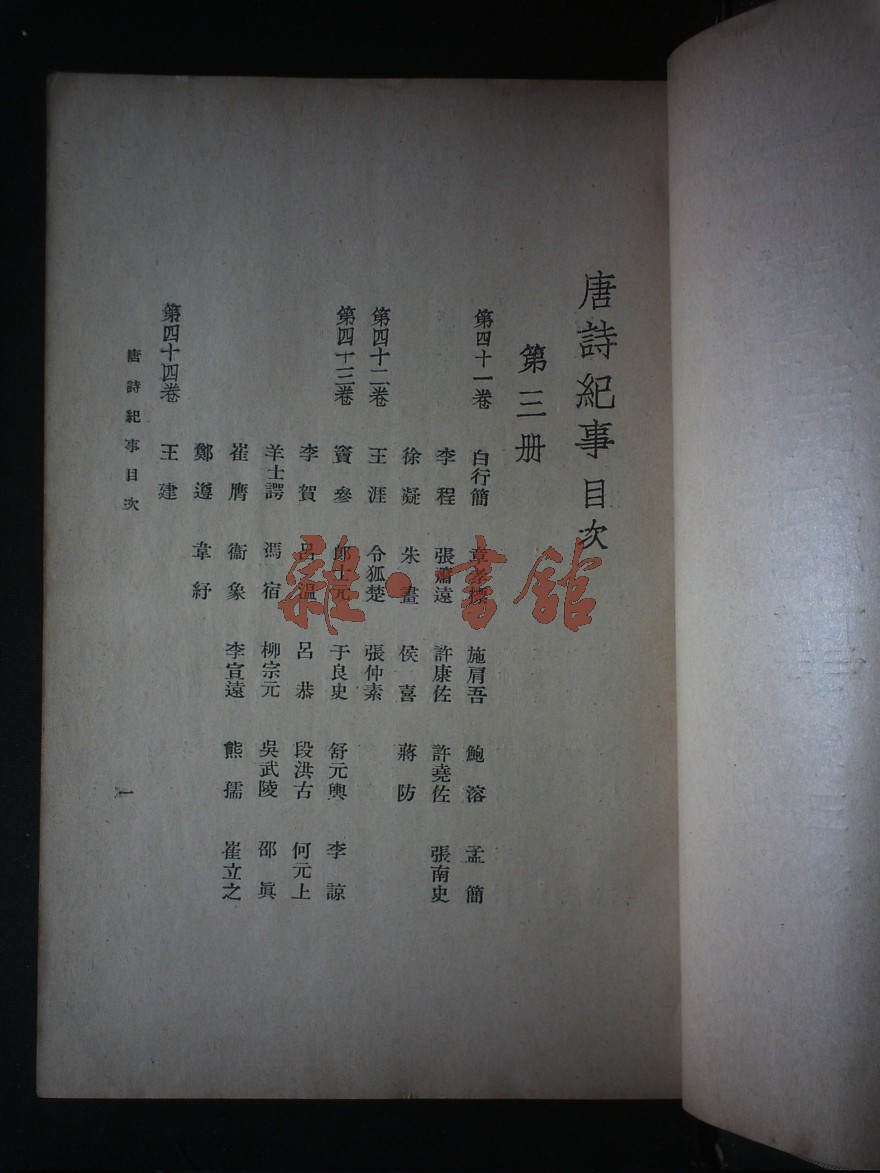 唐詩紀事目次
第三册
第四十一卷 白行簡 章孝標 施肩吾 鮑溶 孟簡
李程 張蕭遠 許康佐 許堯佐 張南史
徐凝 朱晝 侯喜 蔣防
第四十二卷 王涯 令狐楚 張仲素
第四十三卷 竇參 郎士元 于良史 舒元輿 李諒
李賀 呂溫 呂恭 段洪古 何元上
羊士諤 馮宿 柳宗元 吳武陵 邵眞
崔膺 衞象 李宣遠 熊孺 崔立之
鄭遵 韋紓
第四十四卷 王建
唐詩紀事目次
一
雜·書館